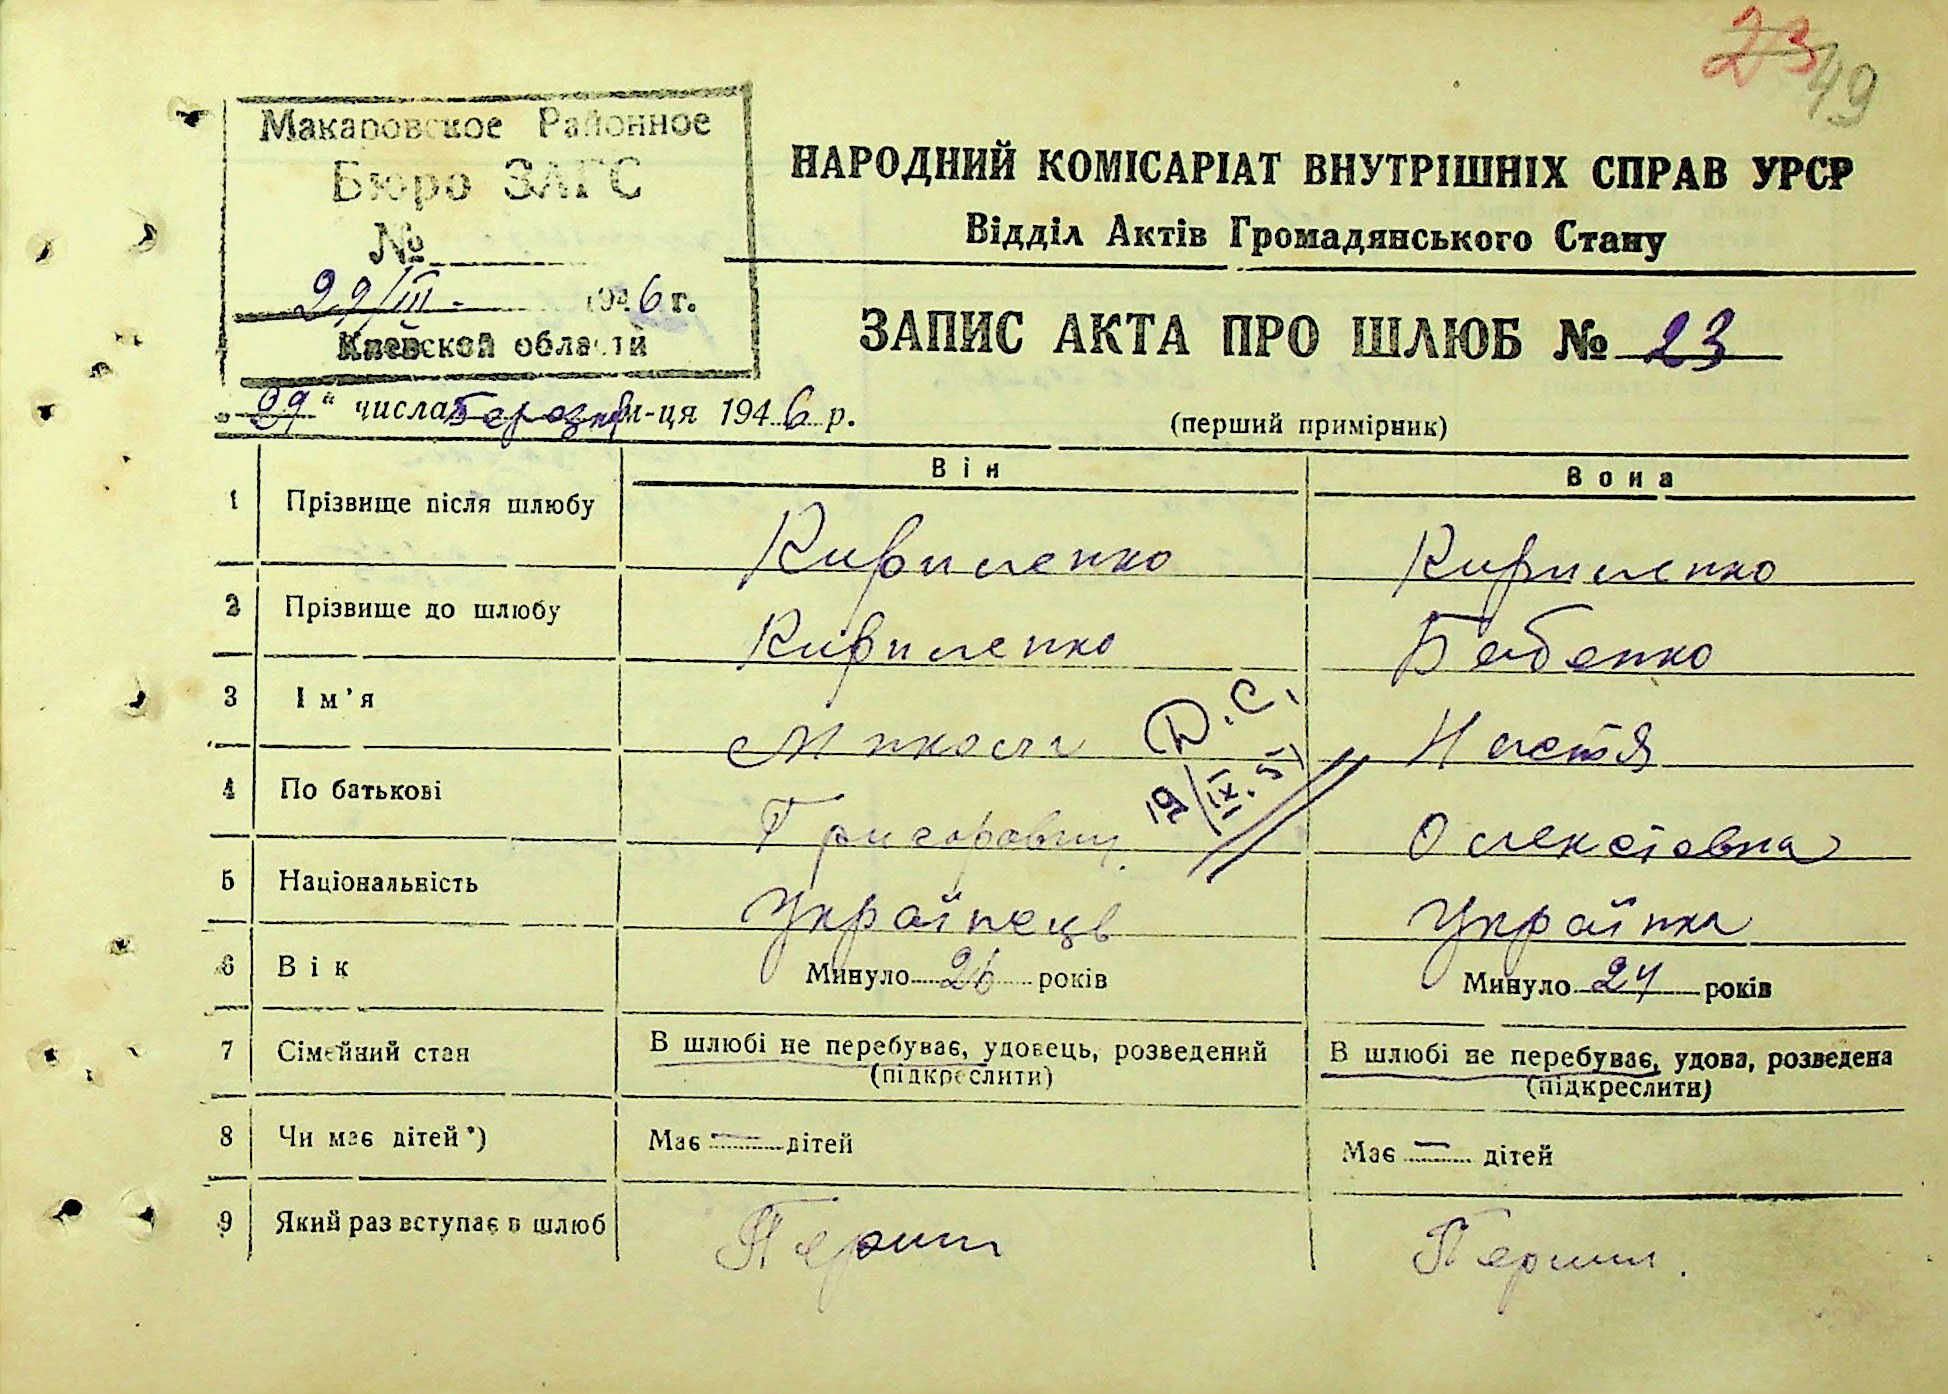 23 49
Макаровское Районное
Бюро ЗАГС
№
29/III - 1946 г.
Киевской области
НАРОДНИЙ КОМІСАРІАТ ВНУТРІШНІХ СПРАВ УРСР
Відділ Актів Громадянського Стану
ЗАПИС АКТА ПРО ШЛЮБ № 23
„29“ числа березня м-ця 1946 р.
(перший примірник)
Він Вона
1 Прізвище після шлюбу Кириленко Кириленко
2 Прізвище до шлюбу Кириленко Бабенко
3 Ім’я Микола Настя
Д.С.
19/IX.51
4 По батькові Григорович Олексіевна
5 Національність Українець Українка
6 Вік Минуло 26 років Минуло 24 років
7 Сімейний стан В шлюбі не перебуває, удовець, розведений В шлюбі не перебуває, удова, розведена
(підкреслити) (підкреслити)
8 Чи має дітей*) Має — дітей Має — дітей
9 Який раз вступає в шлюб Перший Перший.